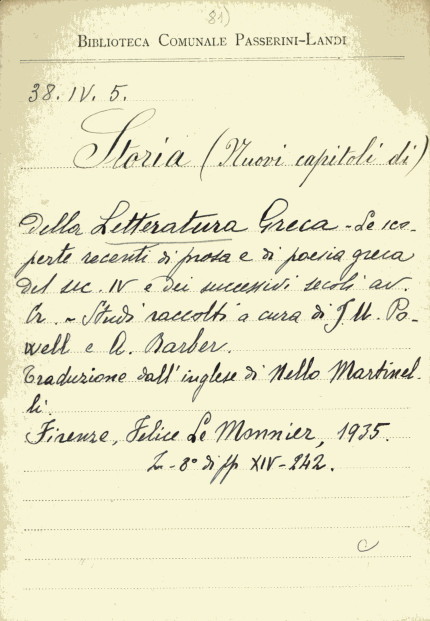 81)
BIBLIOTECA COMUNALE PASSERINI-LANDI
38. IV. 5.
Storia (Nuovi capitoli di)
della Letteratura Greca - Le sco-
perte recenti di prosa e di poesia greca
del sec. IV e dei successivi secoli av.
Cr. - Studi raccolti a cura di J. U. Po-
well e A. Barber.
Traduzione dall'inglese di Nello Martinel-
li.
Firenze, Felice Le Monnier, 1935.
In-8° di pp XIV-242.
C